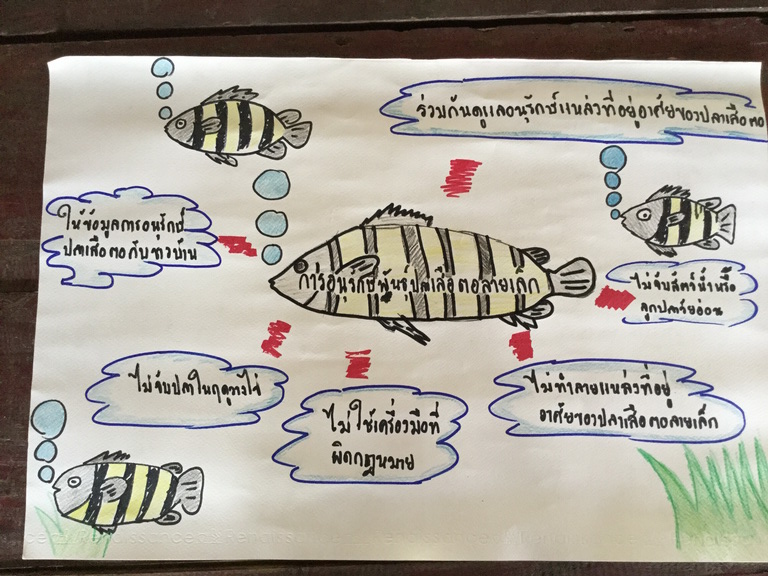 ร่วมกันดูแลอนุรักษ์แหล่งที่อยู่อาศัยของปลาเสือตอ
ให้ข้อมูลการอนุรักษ์
ปลาเสือตอกับชาวบ้าน
การอนุรักษ์พันธุ์ปลาเสือตอลายเล็ก
ไม่จับสัตว์น้ำหรือ
ลูกปลาวัยอ่อน
ไม่จับปลาในฤดูวางไข่
ไม่ใช้เครื่องมือที่
ผิดกฎหมาย
ไม่ทำลายแหล่งที่อยู่
อาศัยของปลาเสือตอลายเล็ก
Renaissance